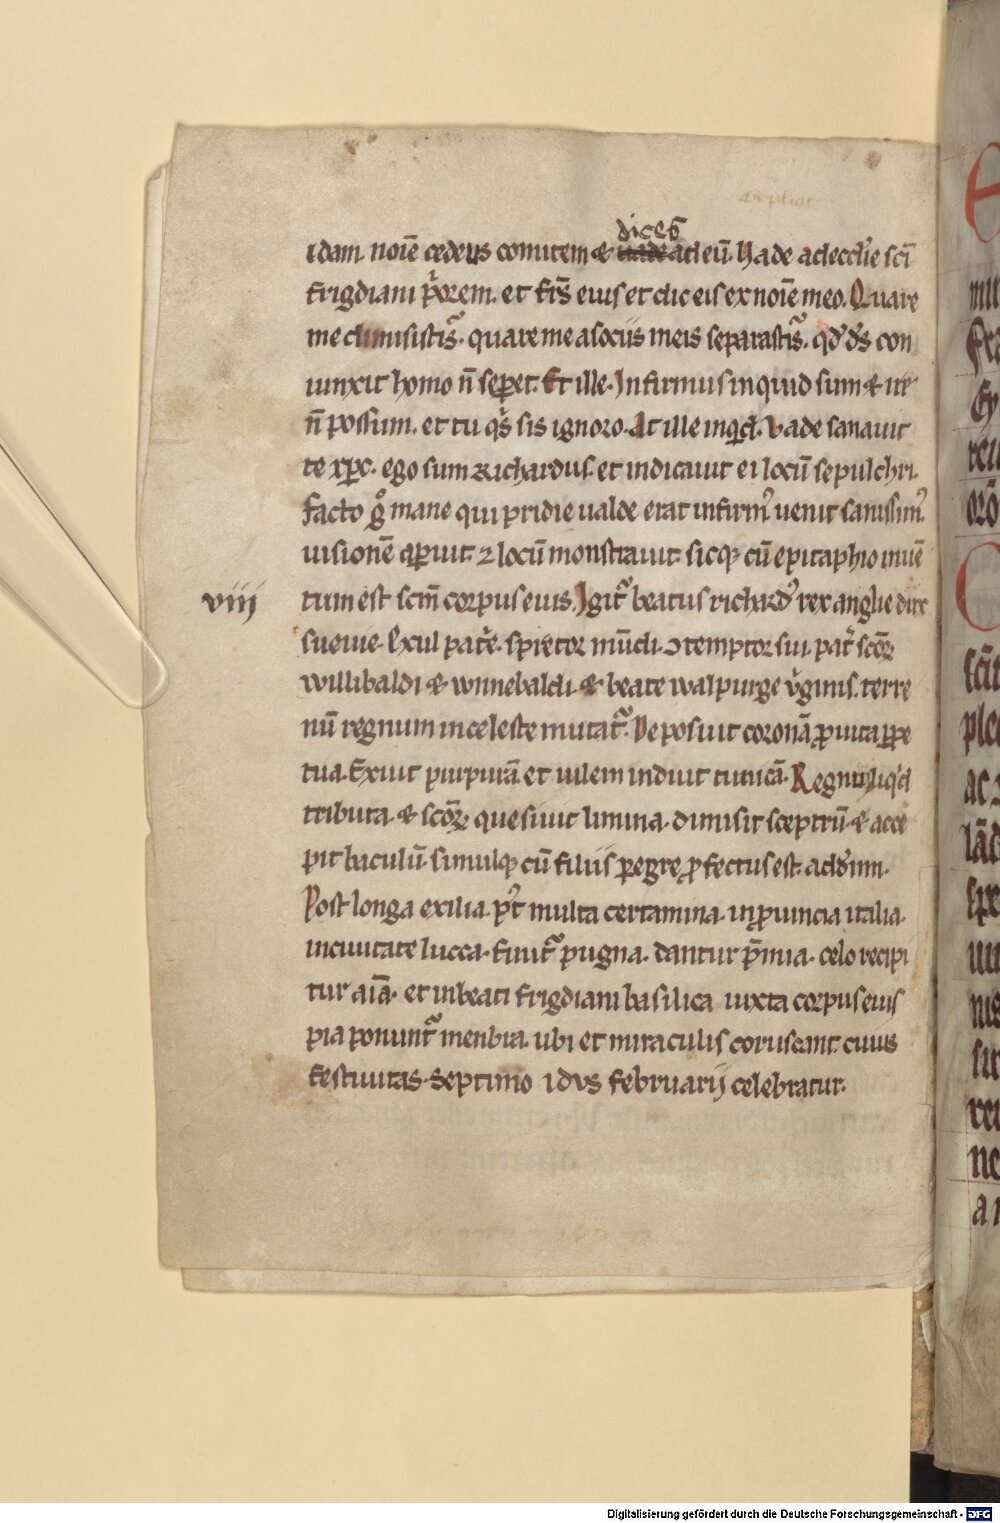 explicit
dices
idam. noīe cedens comitem & uade ad eū. Vade ad eccƚie sc̄i
frigdiani p̄orem. et fr̄s eius et dic eis ex noīe meo. Quare
me dimisistis. quare me a sociis meis separastis. qd̄ ds̄ con
iunxit homo n̄ sepet. Et ille. Infirmus inquid sum & ire
n̄ possum. et tu qis sis ignoro. At ille inqid. Vade sanauit
te xpc. ego sum Richardus et indicauit ei locū sepulchri.
facto go mane qui pridie ualde erat infirm' uenit sanissim'.
uisionē apuit. 7 locū monstrauit. sicq; cū epitaphio inuē
viij
tum est scm̄ corpus eius. Igit~ beatus richard' rex anglie dux
sueuie. Exul pat'e. spretor mūdi. 9temptor sui. pat' scōꝝ
willibaldi & winnebaldi. & beate walpurge v'ginis. terre
nū regnum in celeste mutat~. Deposuit coronā ꝓ uita ꝑpe
tua. Exuit purpurā et uilem induit tunicā. Regni liqid
tributa. & scōꝝ quesiuit limina. dimisit sceptrū. & acce
pit baculū. simulq; cū filiis ꝑegre ꝓfectus est. ad dn̄m.
Post longa exilia. p't multa certamina. in ꝓuincia italia.
in ciuitate lucca. finit~ pugna. dantur p̄mia. celo recipi
tur aīa. et in beati frigdiani basilica iuxta corpus eius
pia ponunt~ menbra. ubi et miraculis coruscant. cuius
festiuitas. septimo idvs februarij celebratur.
Digitalisierung gefördert durch die Deutsche Forschungsgemeinschaft - DFG